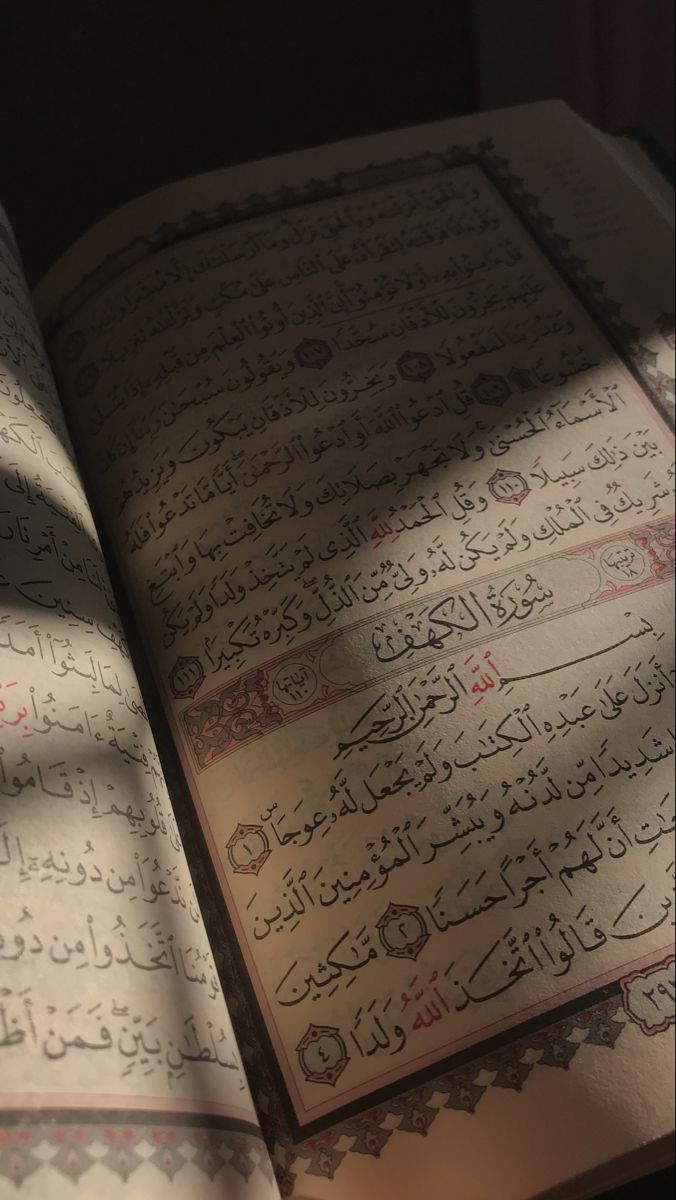 وَبِٱلْحَقِّ أَنزَلْنَٰهُ وَبِٱلْحَقِّ نَزَلَ وَمَآ أَرْسَلْنَٰكَ إِلَّا مُبَشِّرًا وَنَذِيرًا
وَقُرْءَانًا فَرَقْنَٰهُ لِتَقْرَأَهُۥ عَلَى ٱلنَّاسِ عَلَىٰ مُكْثٍ وَنَزَّلْنَٰهُ تَنزِيلًا
قُلْ ءَامِنُوا۟ بِهِۦٓ أَوْ لَا تُؤْمِنُوٓا۟ إِنَّ ٱلَّذِينَ أُوتُوا۟ ٱلْعِلْمَ مِن قَبْلِهِۦٓ إِذَا يُتْلَىٰ
عَلَيْهِمْ يَخِرُّونَ لِلْأَذْقَانِ سُجَّدًا ١٠٧ وَيَقُولُونَ سُبْحَٰنَ رَبِّنَآ إِن كَانَ
وَعْدُ رَبِّنَا لَمَفْعُولًا ١٠٨ وَيَخِرُّونَ لِلْأَذْقَانِ يَبْكُونَ وَيَزِيدُهُمْ
خُشُوعًا ۩ ١٠٩ قُلِ ٱدْعُوا۟ ٱللَّهَ أَوِ ٱدْعُوا۟ ٱلرَّحْمَٰنَ أَيًّا مَّا تَدْعُوا۟ فَلَهُ
ٱلْأَسْمَآءُ ٱلْحُسْنَىٰ وَلَا تَجْهَرْ بِصَلَاتِكَ وَلَا تُخَافِتْ بِهَا وَٱبْتَغِ
بَيْنَ ذَٰلِكَ سَبِيلًا ١١٠ وَقُلِ ٱلْحَمْدُ لِلَّهِ ٱلَّذِى لَمْ يَتَّخِذْ وَلَدًا وَلَمْ يَكُن
شَرِيكٌ فِى ٱلْمُلْكِ وَلَمْ يَكُن لَّهُۥ وَلِىٌّ مِّنَ ٱلذُّلِّ وَكَبِّرْهُ تَكْبِيرًۢا ١١١
ترتيبها ١٨ سُورَةُ الكَهْفِ آياتها ١١٠
بِسْمِ ٱللَّهِ ٱلرَّحْمَٰنِ ٱلرَّحِيمِ
أَنزَلَ عَلَىٰ عَبْدِهِ ٱلْكِتَٰبَ وَلَمْ يَجْعَل لَّهُۥ عِوَجَا ۜ ١
شَدِيدًا مِّن لَّدُنْهُ وَيُبَشِّرَ ٱلْمُؤْمِنِينَ ٱلَّذِينَ
أَنَّ لَهُمْ أَجْرًا حَسَنًا ٢ مَّٰكِثِينَ
قَالُوا۟ ٱتَّخَذَ ٱللَّهُ وَلَدًا ٤
لِمَا لَبِثُوٓا۟ أَمَدًا
فِتْيَةٌ ءَامَنُوا۟
قُلُوبِهِمْ إِذْ قَامُوا۟
نَّدْعُوَا۟ مِن دُونِهِۦٓ
قَوْمُنَا ٱتَّخَذُوا۟ مِن
بِسُلْطَٰنٍۭ بَيِّنٍ فَمَنْ